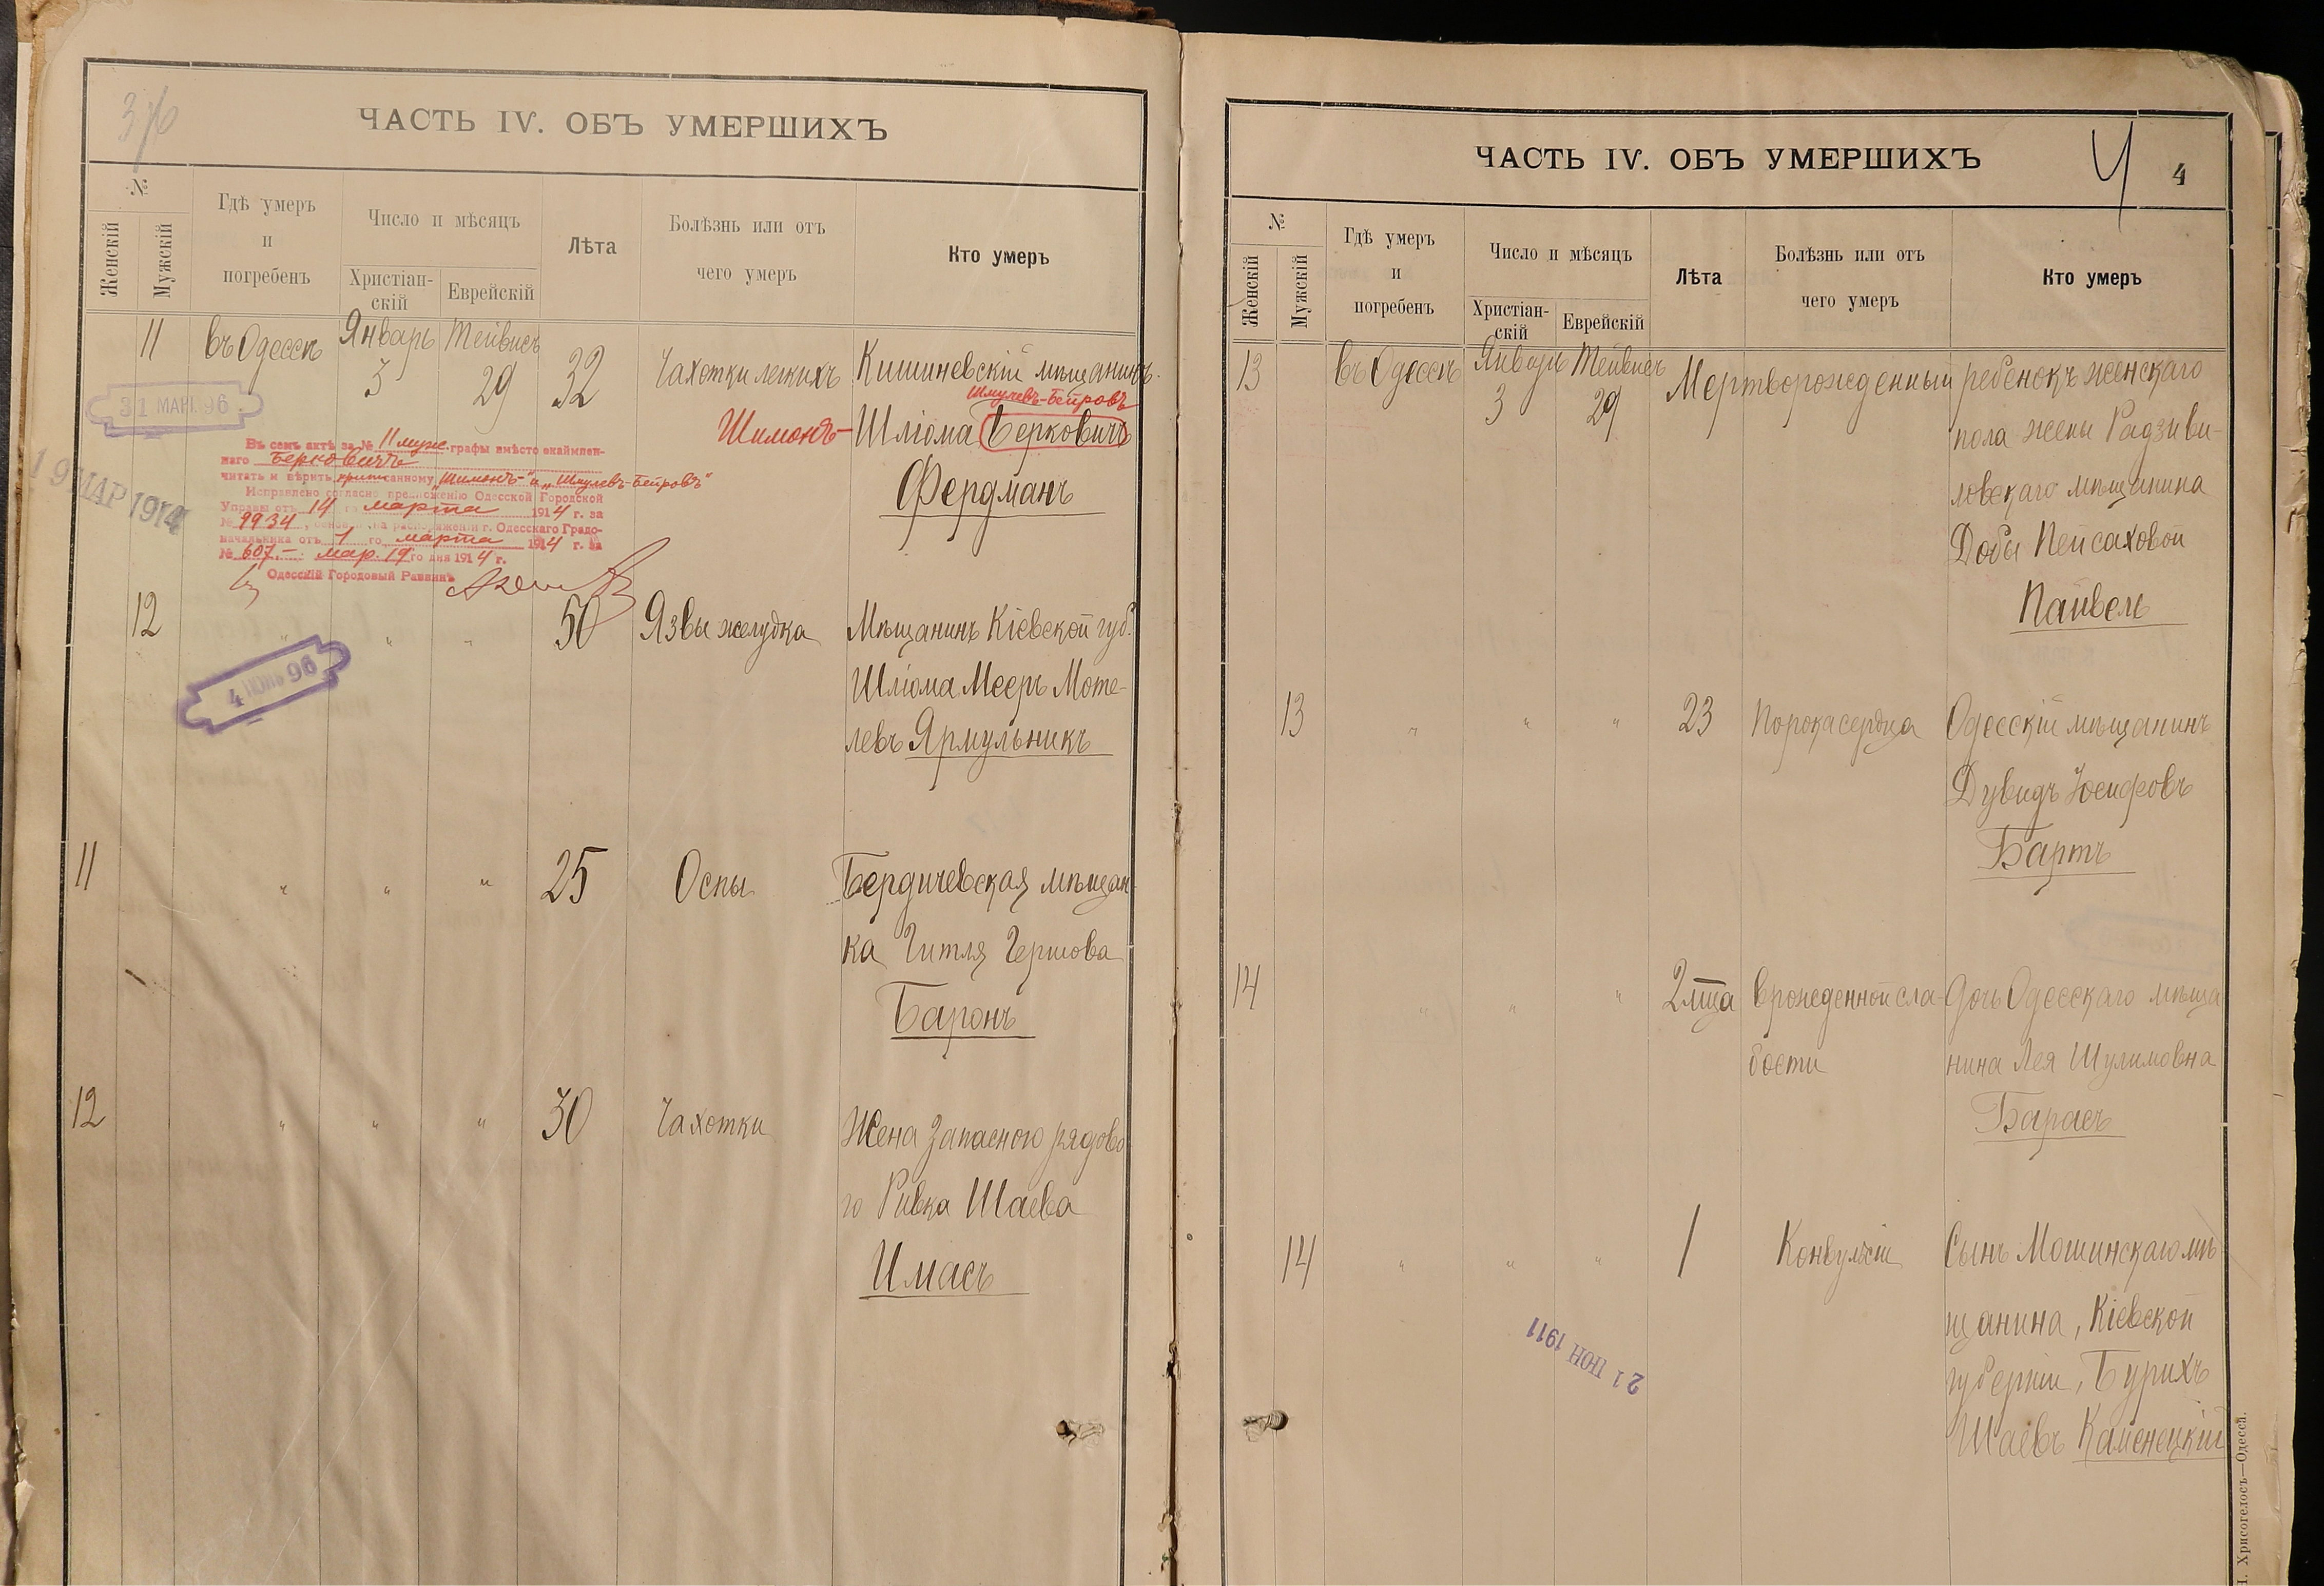 ЧАСТЬ IV. ОБЪ УМЕРШИХЪ
№
Женскій
Мужскій
Гдѣ умеръ
и
погребенъ
Число и мѣсяцъ
Христіан-
скій
Еврейскій
Лѣта
Болѣзнь или отъ
чего умеръ
Кто умеръ
11 въ Одессѣ Январь Тейвисъ 32 Чахотки легкихъ Кишиневскій мѣщанинъ
3 29
Шмулевъ-Бейровъ
Шимонъ- Шліома Берковичъ
Фердманъ
31 МАР. 96
19 МАР 1914
Въ семъ актѣ за № 11 муж. графы вмѣсто окаймлен-
наго Берковичъ
читать и вѣрить приписанному „Шимонъ-" и „Шмулевъ-Бейровъ"
Исправлено согласно предложенію Одесской Городской
Управы отъ 14 го марта 1914 г. за
№ 9934, основ. на распоряженіи г. Одесскаго Градо-
начальника отъ 1 го марта 1914 г. за
№ 607.- мар. 19 го дня 1914 г.
Одесскій Городовый Раввинъ
12 " " " 50 Язвы желудка Мѣщанинъ Кіевской губ.
Шліома Мееръ Моте-
левъ Ярмульникъ
4 ІЮНЯ 96
11 " " " 25 Оспы Бердичевская мѣщан-
ка Гитля Гершова
Баронъ
12 " " " 30 Чахотки Жена запасного рядово
го Ривка Шаева
Имасъ
ЧАСТЬ IV. ОБЪ УМЕРШИХЪ
4
4
№
Женскій
Мужскій
Гдѣ умеръ
и
погребенъ
Число и мѣсяцъ
Христіан-
скій
Еврейскій
Лѣта
Болѣзнь или отъ
чего умеръ
Кто умеръ
13 въ Одессѣ Январь Тейвисъ Мертворожденный ребенокъ женскаго
3 29
пола жены Радзиви-
ловскаго мѣщанина
Добы Пейсаховой
Пайвель
13 " " " 23 Порока сердца Одесскій мѣщанинъ
Дувидъ Іосифовъ
Бартъ
14 " " " 2 м-ца врожденной сла- дочь Одесскаго мѣща
бости нина Лея Шулимовна
Барасъ
14 " " " 1 Конвульсіи Сынъ Мошинскаго мѣ
щанина, Кіевской
губерніи, Бурихъ
Шаевъ Каменецкій
21 ІЮН 1911
Хрисогелосъ—Одесса.